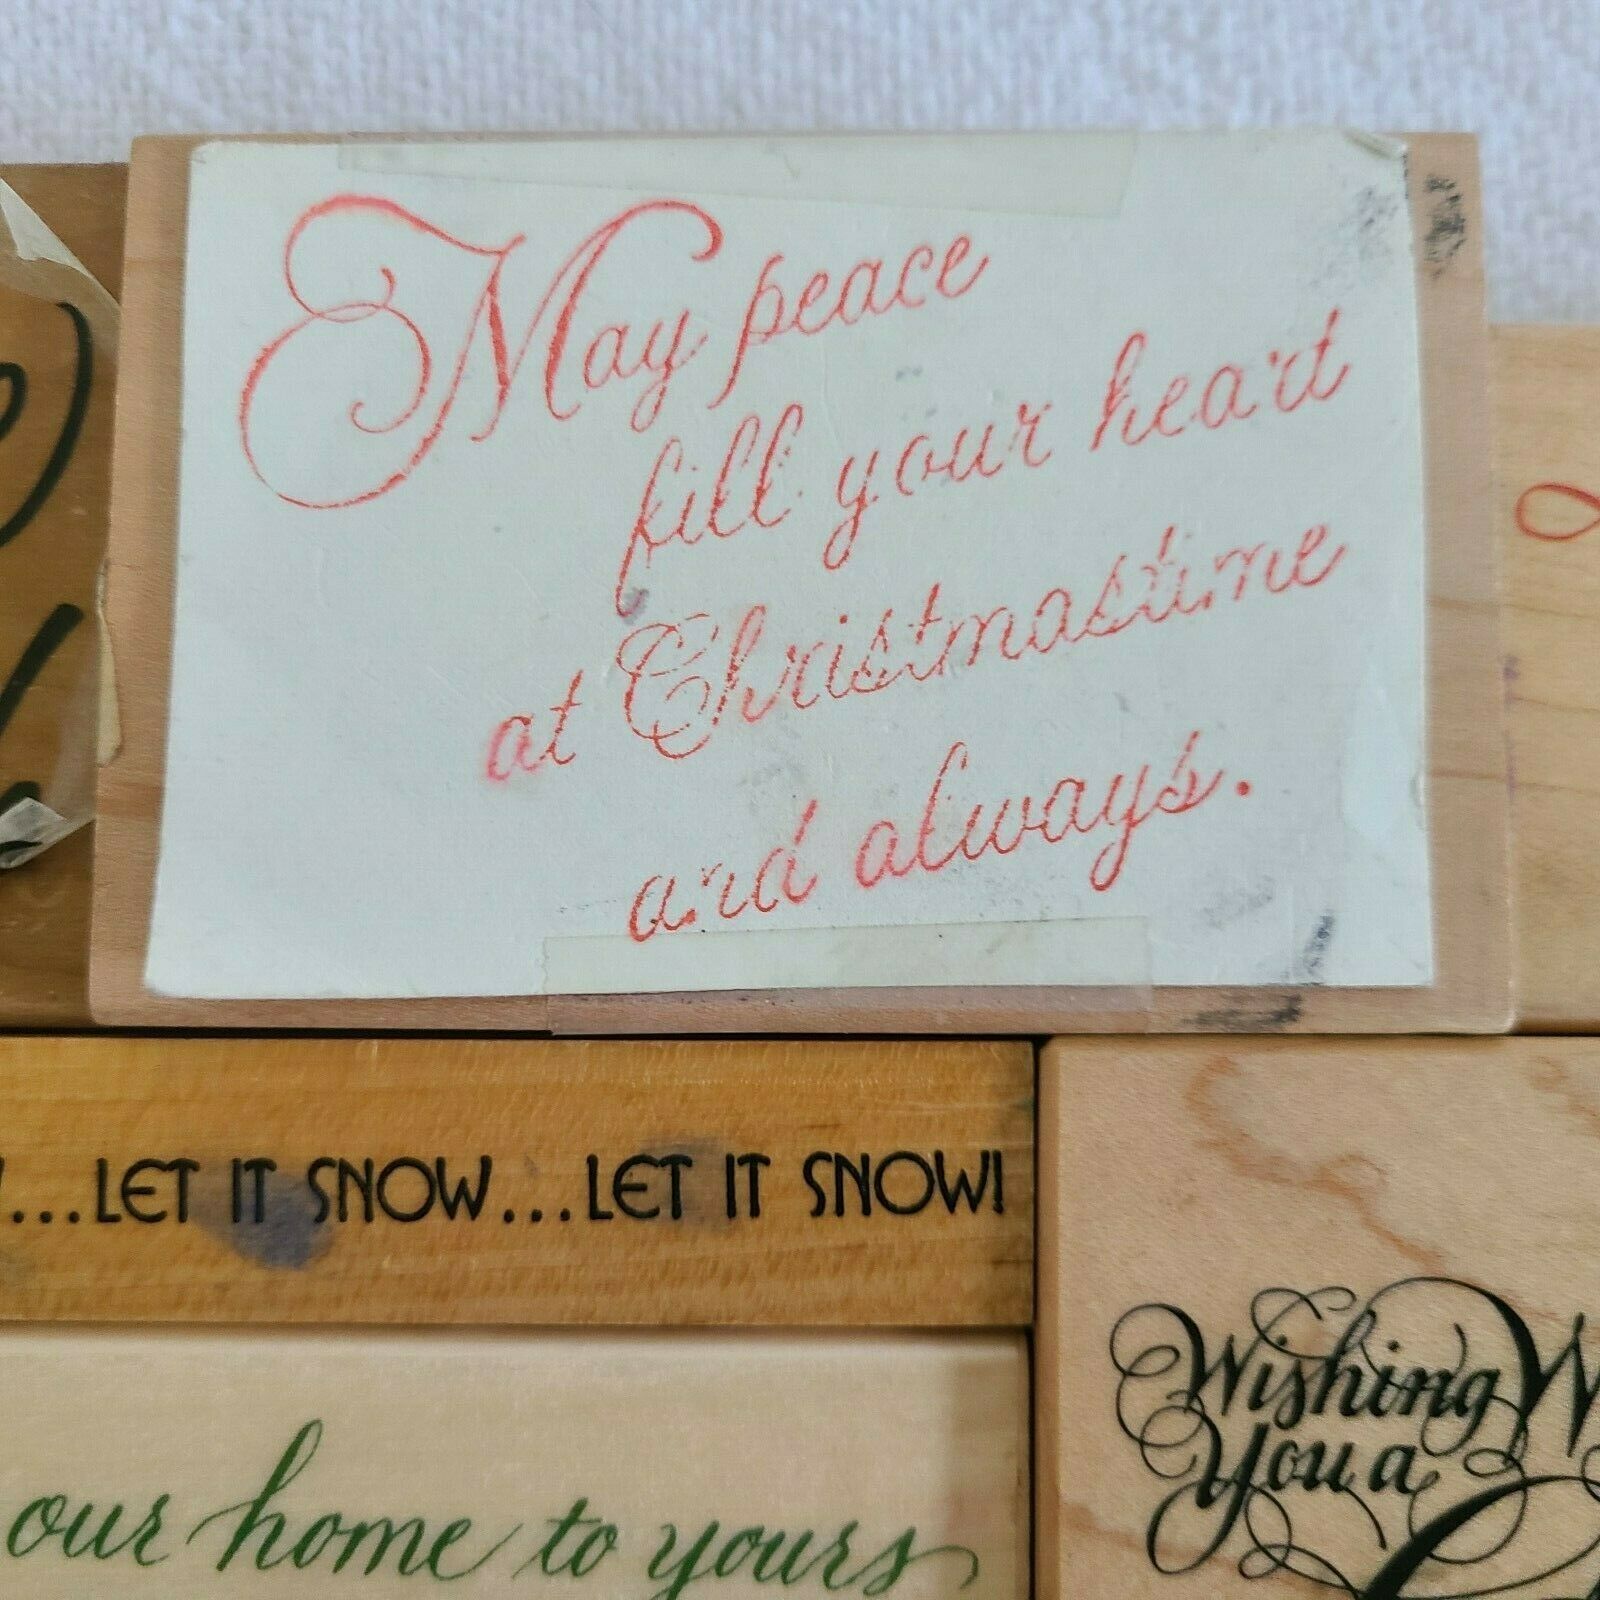 May peace
fill your heart
at Christmastime
and always.
...LET IT SNOW...LET IT SNOW!
our home to yours
Wishing
You a